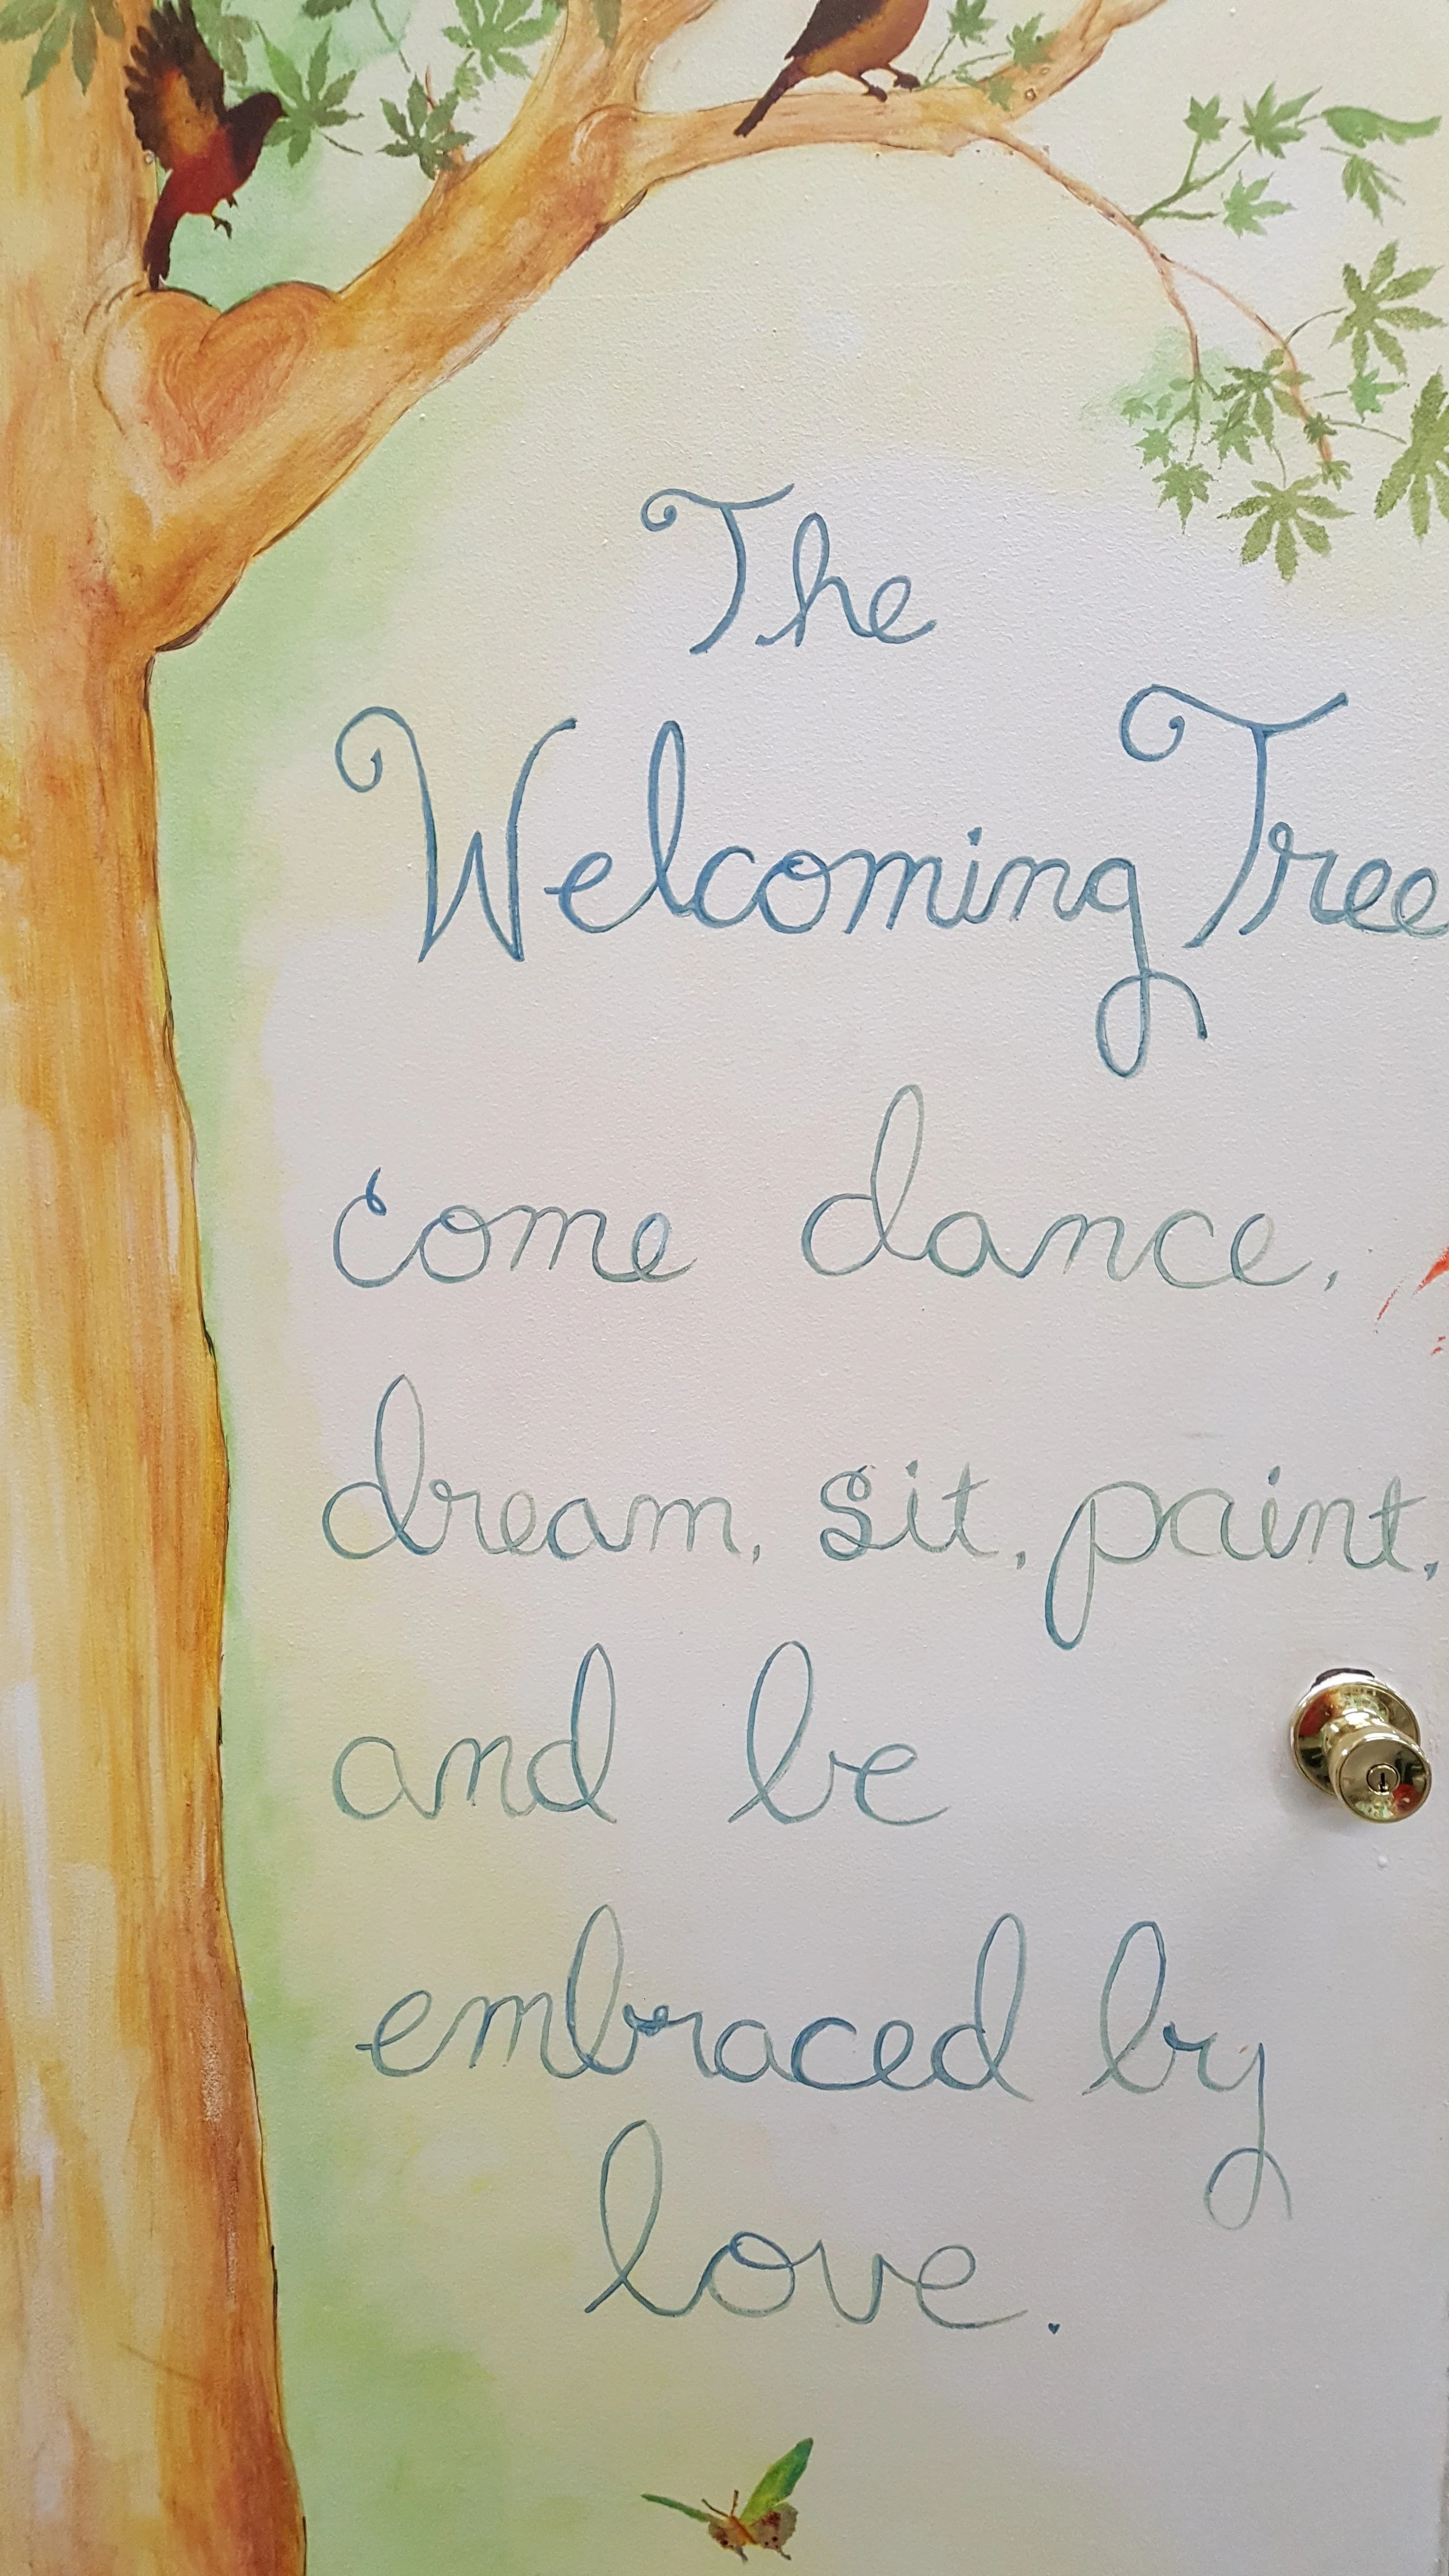 The
Welcoming Tree
come dance,
dream, sit, paint,
and be
embraced by
love.